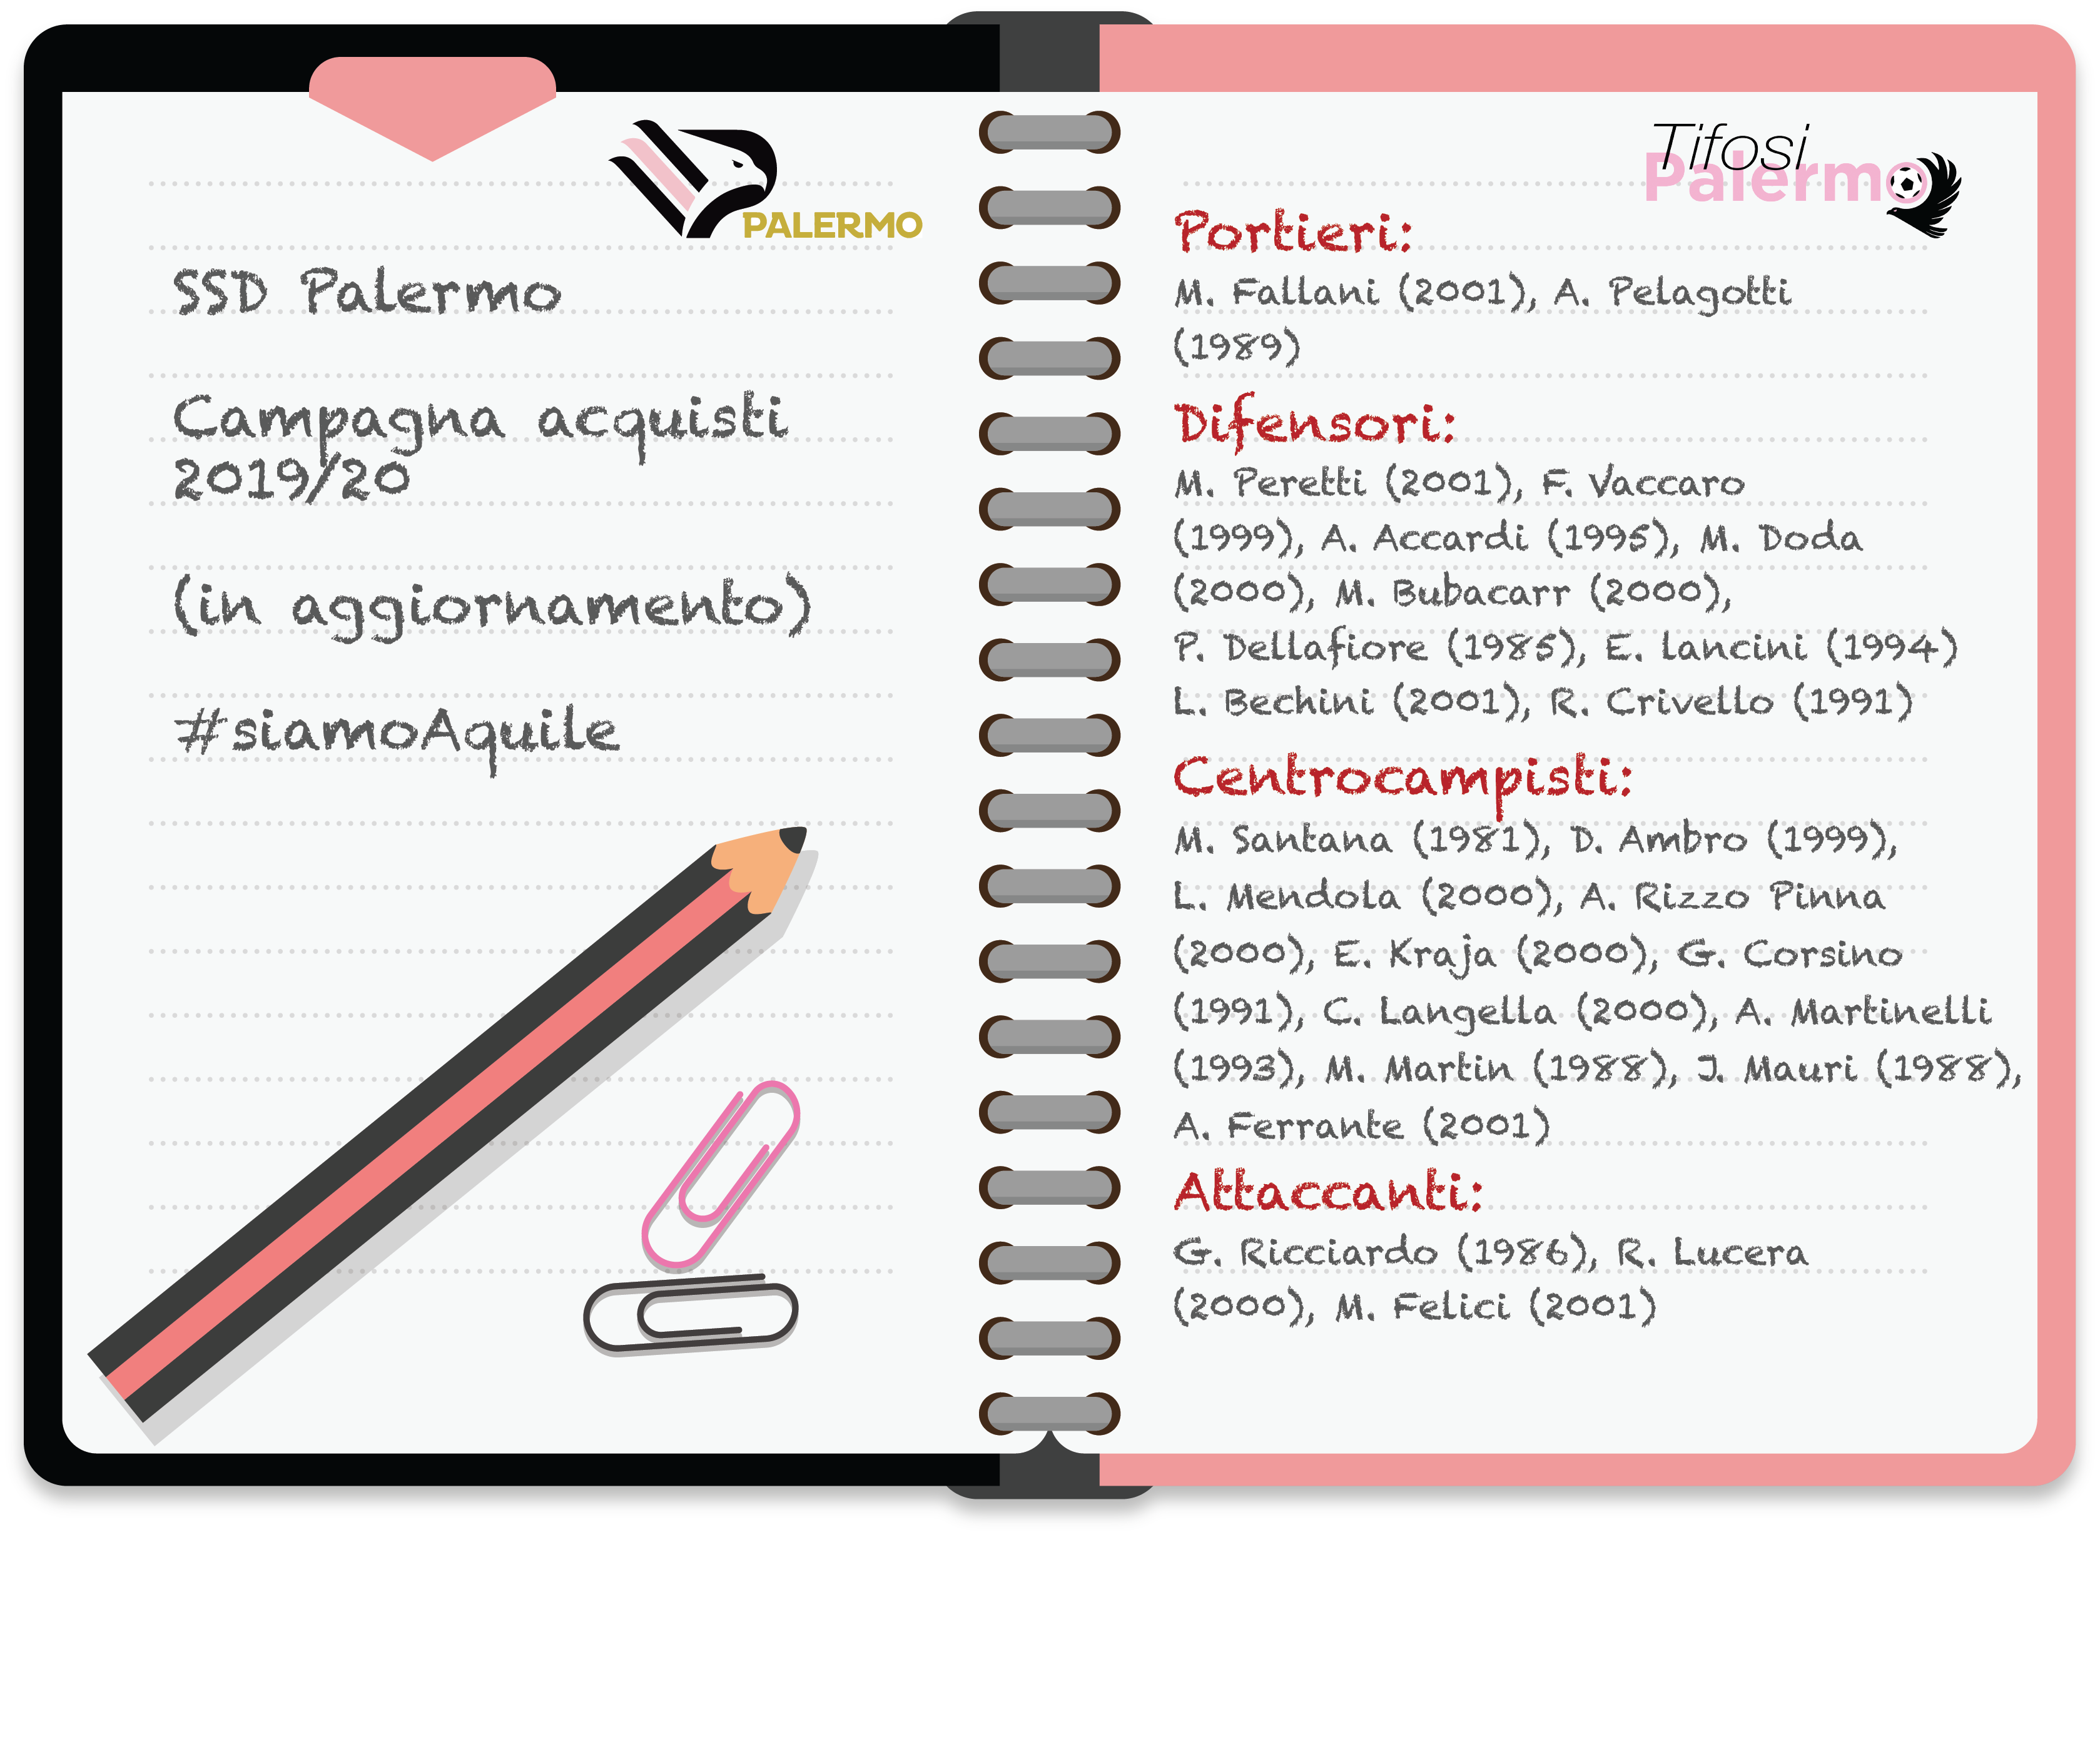 PALERMO
SSD Palermo
Campagna acquisti
2019/20
(in aggiornamento)
#siamoAquile
Tifosi
Palermo
Portieri:
M. Fallani (2001), A. Pelagotti
(1989)
Difensori:
M. Peretti (2001), F. Vaccaro
(1999), A. Accardi (1995), M. Doda
(2000), M. Bubacarr (2000),
P. Dellafiore (1985), E. lancini (1994)
L. Bechini (2001), R. Crivello (1991)
Centrocampisti:
M. Santana (1981), D. Ambro (1999),
L. Mendola (2000), A. Rizzo Pinna
(2000), E. Kraja (2000), G. Corsino
(1991), C. Langella (2000), A. Martinelli
(1993), M. Martin (1988), J. Mauri (1988),
A. Ferrante (2001)
Attaccanti:
G. Ricciardo (1986), R. Lucera
(2000), M. Felici (2001)